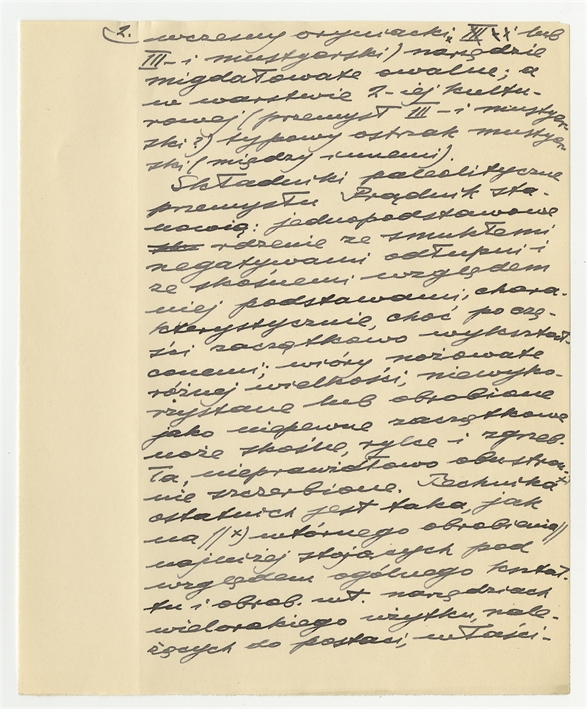 2. wczesny oryniacki; III lub
III - i mustyerski) narzędzie
migdałowate owalne; a
w warstwie 2-iej kultu-
rowej (przemysł III - i mustyer-
ski?) typowy ostrak mustyer-
ski (między innemi).
Składniki paleolityczne
przemysłu Prądnik sta-
nowią: jednopodstawowe
rdzenie ze smukłemi
negatywami odłupni i
ze skośnemi względem
niej podstawami, chara-
kterystycznie, choć po czę-
ści zaczątkowo wykształ-
conemi; wióry nożowate
różnej wielkości, niewyko-
rzystane lub obrobione
jako niepewne zaczątkowe
noże skośne, rylce i zgrzeb-
ła, nieprawidłowo obustron-
nie szczerbione. Technika x)
ostatnich jest taka, jak
na // x) wtórnego obrobienia //
najniżej stojących pod
względem ogólnego kształ-
tu i obrob. wt. narzędziach
wielorakiego użytku, nale-
żących do postaci, właści-